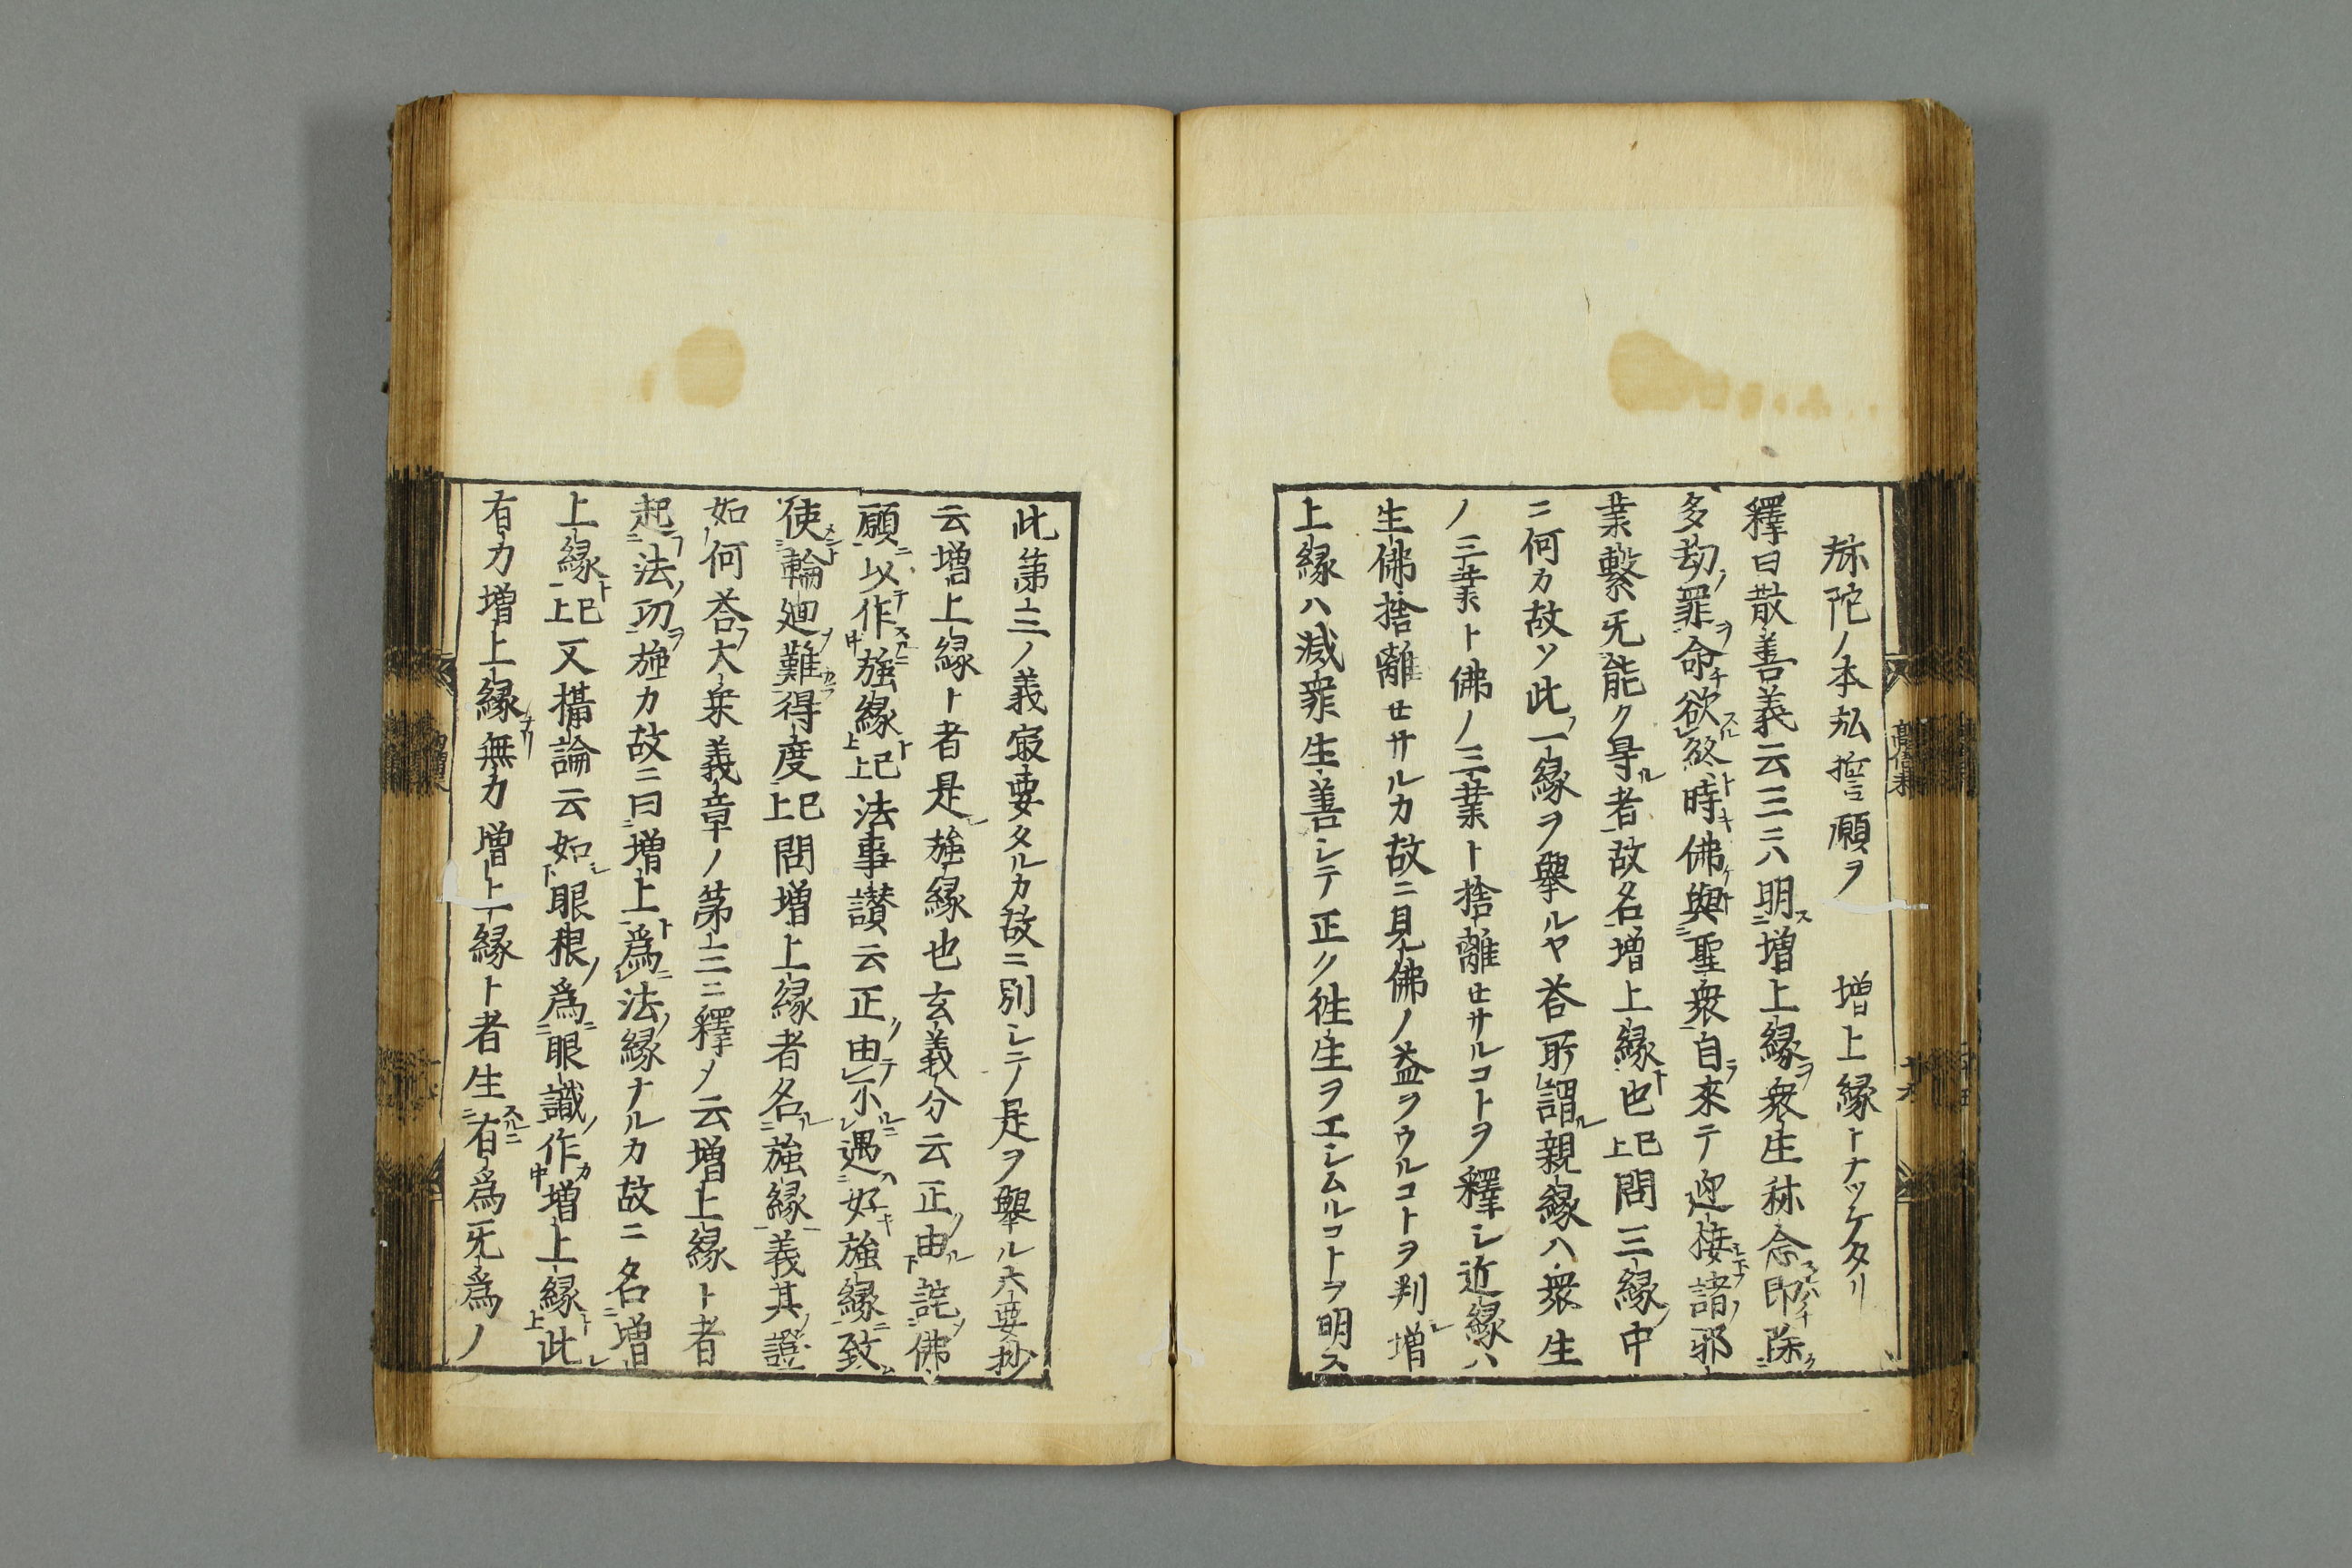 弥陀ノ本弘誓願ヲ　増上縁トナツケタリ
釋曰散善義云三ニハ明増上縁衆生称念即除
多劫罪命欲終時佛與聖衆自來テ迎接諸邪
業繋旡能ク㝵者故名増上縁也已上問三縁中
ニ何カ故ソ此一縁ヲ擧ルヤ荅所謂親縁ハ衆生
ノ三業ト佛ノ三業ト捨離せサルコトヲ釋シ近縁ハ
生佛捨離せサルカ故ニ見佛ノ益ヲウルコトヲ判増
上縁ハ滅罪生善シテ正ク徃生ヲエシムルコトヲ明ス
此第三ノ義㝡要タルカ故ニ別シテ是ヲ擧ル大要抄
云増上縁ト者是強縁也玄義分云正由託佛
願以作強縁已上法事讃云正由不遇好強縁致
使輪廻難得度已上問増上縁者名強縁義其證
如何荅大乗義章ノ第三ニ釋メ云増上縁ト者
起法功強カ故ニ曰増上爲法縁ナルカ故ニ名増
上縁已上又攝論云如眼根爲眼識作増上縁此
有力増上縁無力増上縁ト者生有爲旡爲ノ